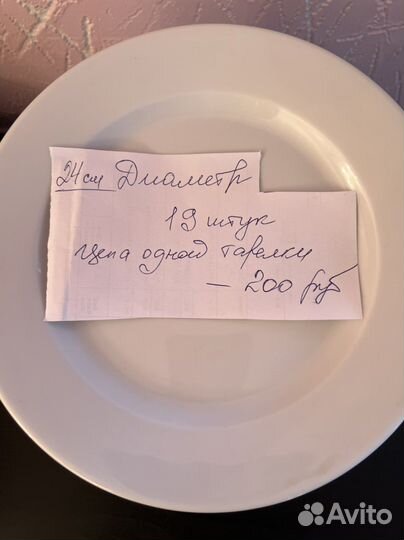 24 см Диаметр
19 штук
Цена одной тарелки
– 200 руб
Avito